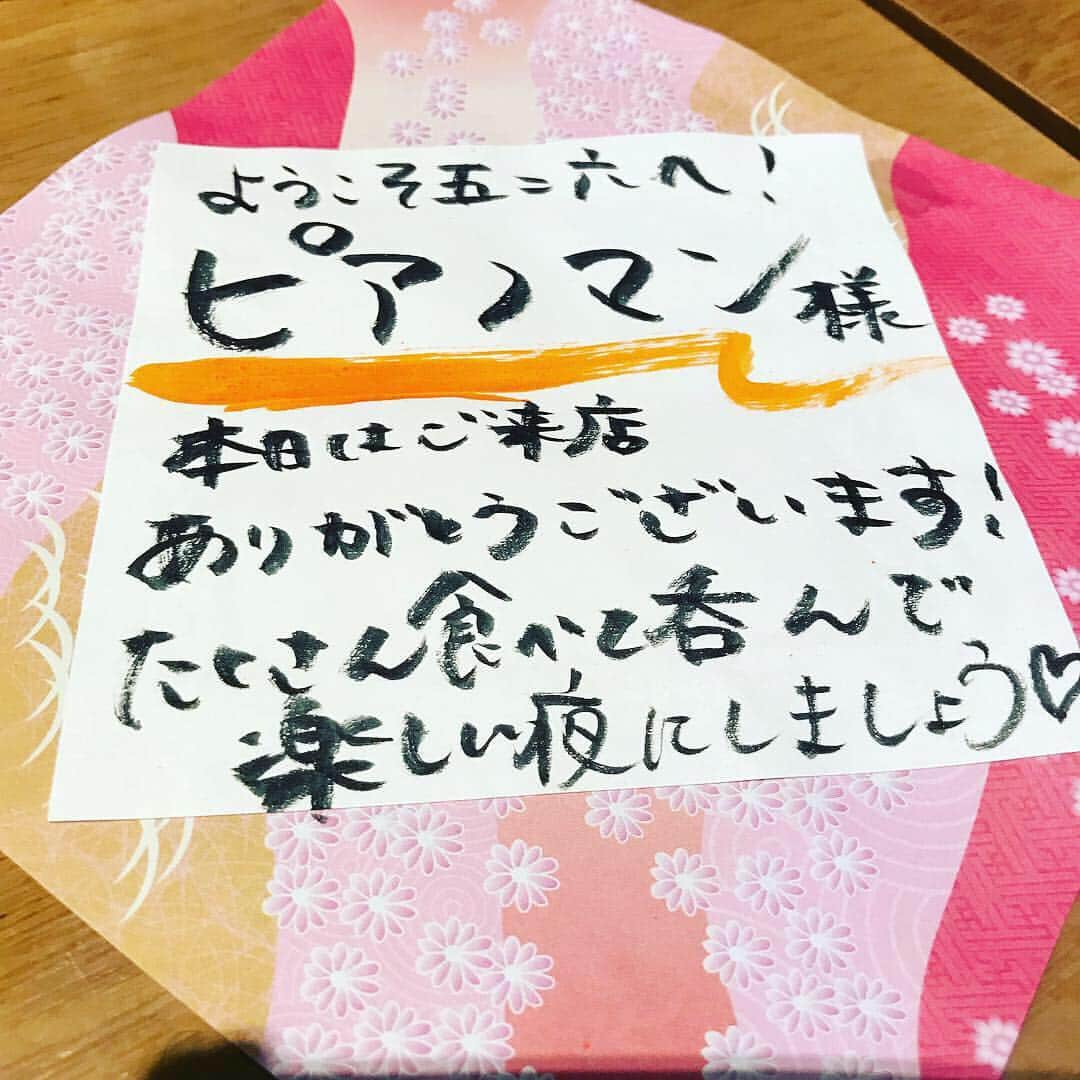 ようこそ五二六へ！
ピアノマン様
本日はご来店
ありがとうございます！
たくさん食べて呑んで
楽しい夜にしましょう♡